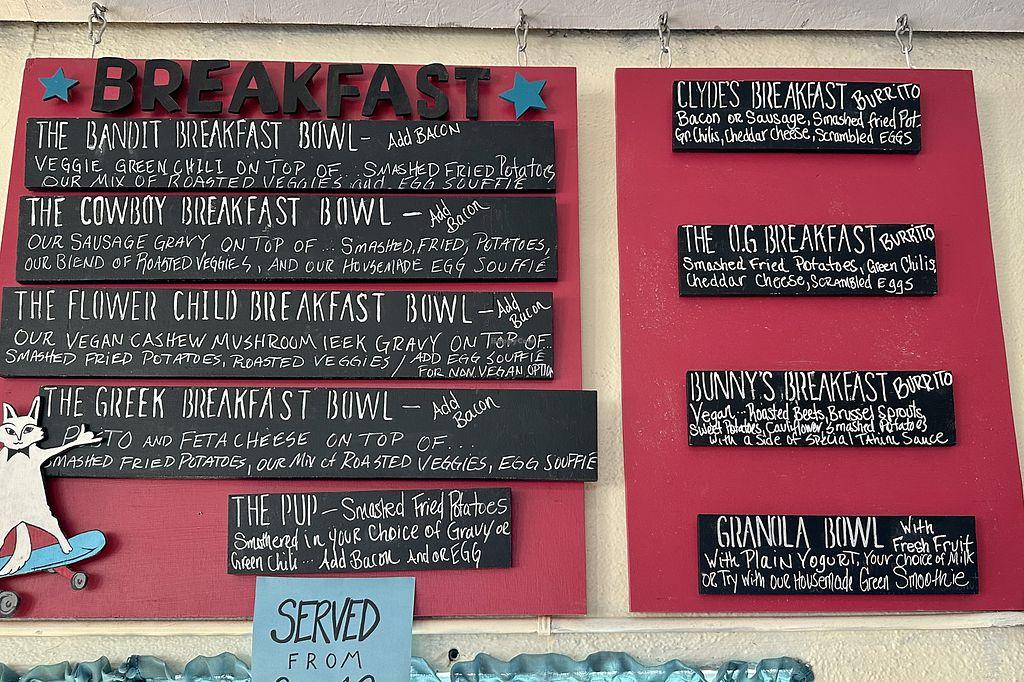 BREAKFAST
THE BANDIT BREAKFAST BOWL- Add BACON
VEGGIE GREEN CHILI ON TOP OF... SMASHED FRIED Potatoes
OUR MIX OF ROASTED VEGGIES and EGG SOUFFLE
THE COWBOY BREAKFAST BOWL - Add Bacon
OUR SAUSAGE GRAVY ON TOP OF... SMASHED, FRIED, POTATOES,
OUR BLEND OF ROASTED VEGGIES, AND OUR HOUSEMADE EGG SOUFFLE
THE FLOWER CHILD BREAKFAST BOWL - Add Bacon
OUR VEGAN CASHEW MUSHROOM LEEK GRAVY ON TOP OF...
SMASHED FRIED POTATOES, ROASTED VEGGIES / ADD EGG SOUFFLE
FOR NON VEGAN OPTION
THE GREEK BREAKFAST BOWL - Add Bacon
AND FETA CHEESE ON TOP OF...
SMASHED FRIED POTATOES, OUR MIX of ROASTED VEGGIES, EGG SOUFFLE
THE PUP - Smashed Fried Potatoes
Smothered in your Choice of Gravy or
Green Chili... Add Bacon And or EGG
SERVED
FROM
CLYDE'S BREAKFAST BURRITO
Bacon or Sausage, Smashed fried Pot.
Grn Chilis, Cheddar Cheese, Scrambled EGGS
THE O.G BREAKFAST BURRITO
Smashed Fried Potatoes, Green Chilis,
Cheddar Cheese, Scrambled Eggs
BUNNY'S BREAKFAST BURRITO
Vegan... Roasted Beets, Brussel Sprouts,
Sweet Potatoes, Cauliflower, Smashed Potatoes
with a side of Special Tahini Sauce
GRANOLA BOWL With Fresh Fruit
With Plain Yogurt, Your Choice of Milk
OR Try with our Housemade Green Smoothie